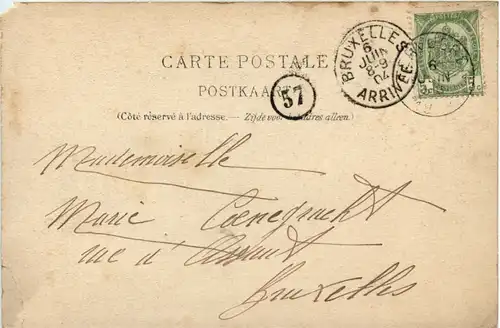 CARTE POSTALE
POSTKAART
(Côté réservé à l'adresse. — Zijde voor adres alleen.)
BRUXELLES
6
JUIN
8-9
04
ARRIVÉE
57
6
JUIN
Mademoiselle
Marie Coenegracht
rue d'Assaut
Bruxelles